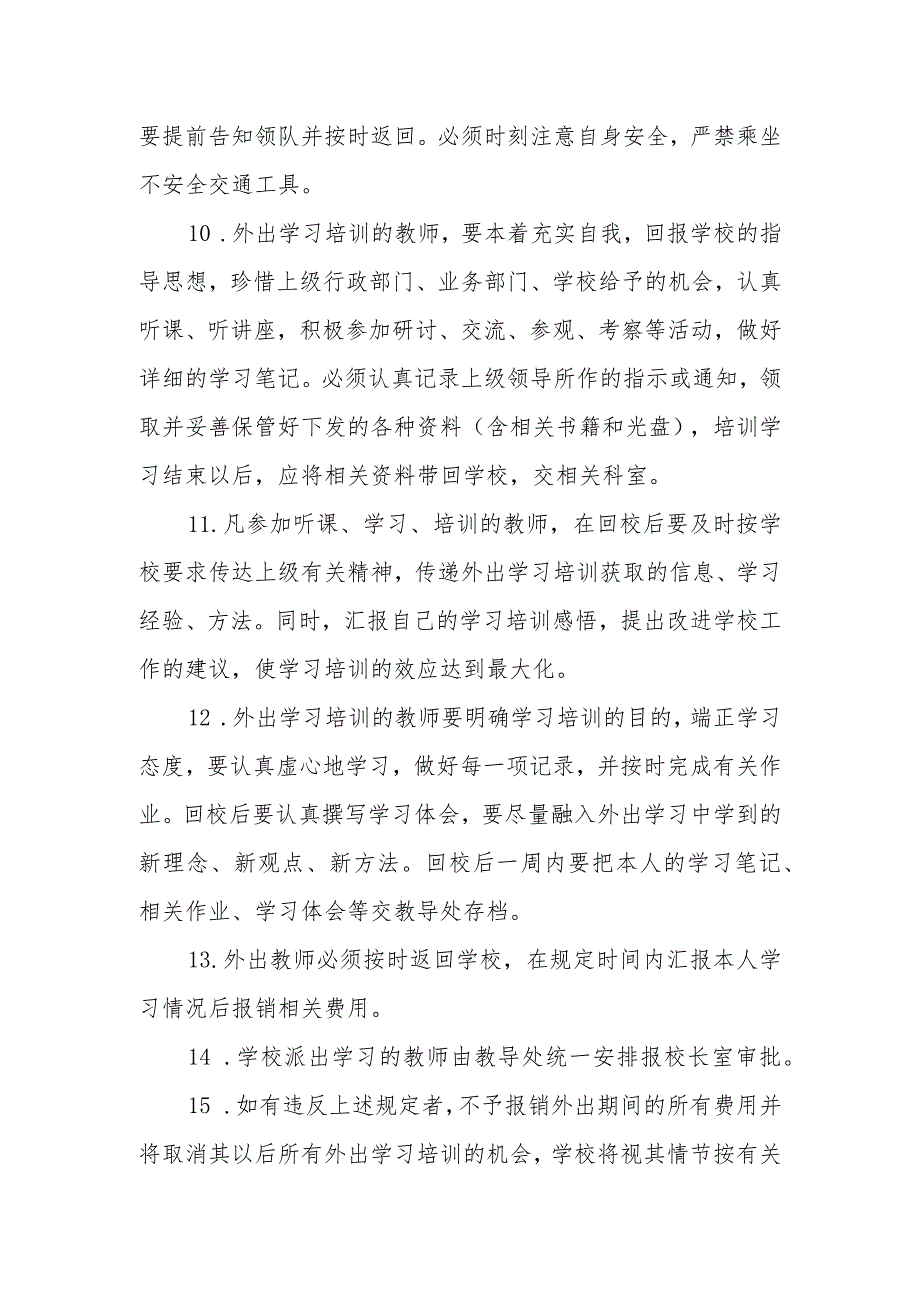 要提前告知领队并按时返回。必须时刻注意自身安全，严禁乘坐
不安全交通工具。
10 .外出学习培训的教师，要本着充实自我，回报学校的指
导思想，珍惜上级行政部门、业务部门、学校给予的机会，认真
听课、听讲座，积极参加研讨、交流、参观、考察等活动，做好
详细的学习笔记。必须认真记录上级领导所作的指示或通知，领
取并妥善保管好下发的各种资料（含相关书籍和光盘），培训学
习结束以后，应将相关资料带回学校，交相关科室。
11.凡参加听课、学习、培训的教师，在回校后要及时按学
校要求传达上级有关精神，传递外出学习培训获取的信息、学习
经验、方法。同时，汇报自己的学习培训感悟，提出改进学校工
作的建议，使学习培训的效应达到最大化。
12 .外出学习培训的教师要明确学习培训的目的，端正学习
态度，要认真虚心地学习，做好每一项记录，并按时完成有关作
业。回校后要认真撰写学习体会，要尽量融入外出学习中学到的
新理念、新观点、新方法。回校后一周内要把本人的学习笔记、
相关作业、学习体会等交教导处存档。
13.外出教师必须按时返回学校，在规定时间内汇报本人学
习情况后报销相关费用。
14 .学校派出学习的教师由教导处统一安排报校长室审批。
15 .如有违反上述规定者，不予报销外出期间的所有费用并
将取消其以后所有外出学习培训的机会，学校将视其情节按有关